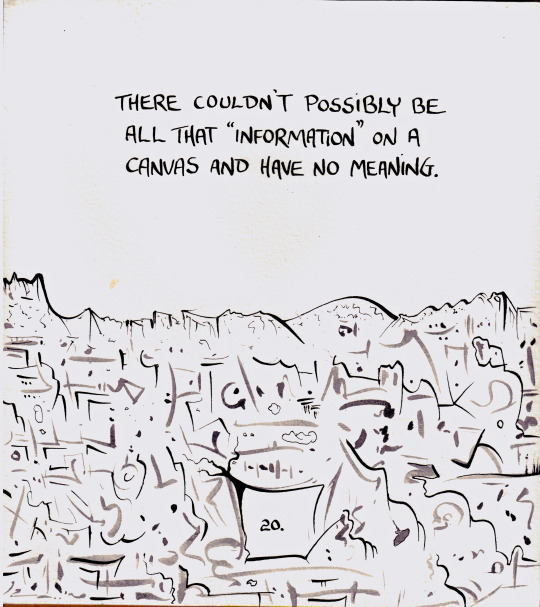 THERE COULDN'T POSSIBLY BE
ALL THAT "INFORMATION" ON A
CANVAS AND HAVE NO MEANING.
20.